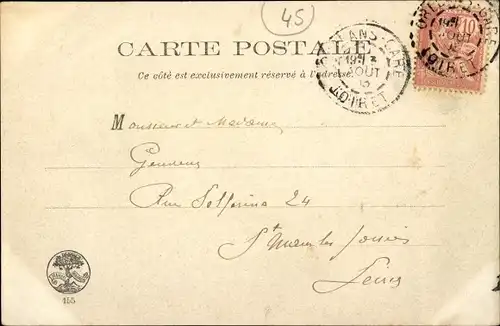 45
CARTE POSTALE
Ce côté est exclusivement réservé à l'adresse
ORLÉANS-GARE
AOUT
LOIRET
10
ORLÉANS-GARE
AOUT
LOIRET
Monsieur et Madame
Rue Solferino 24
St Maur les Fossés
Seine
155